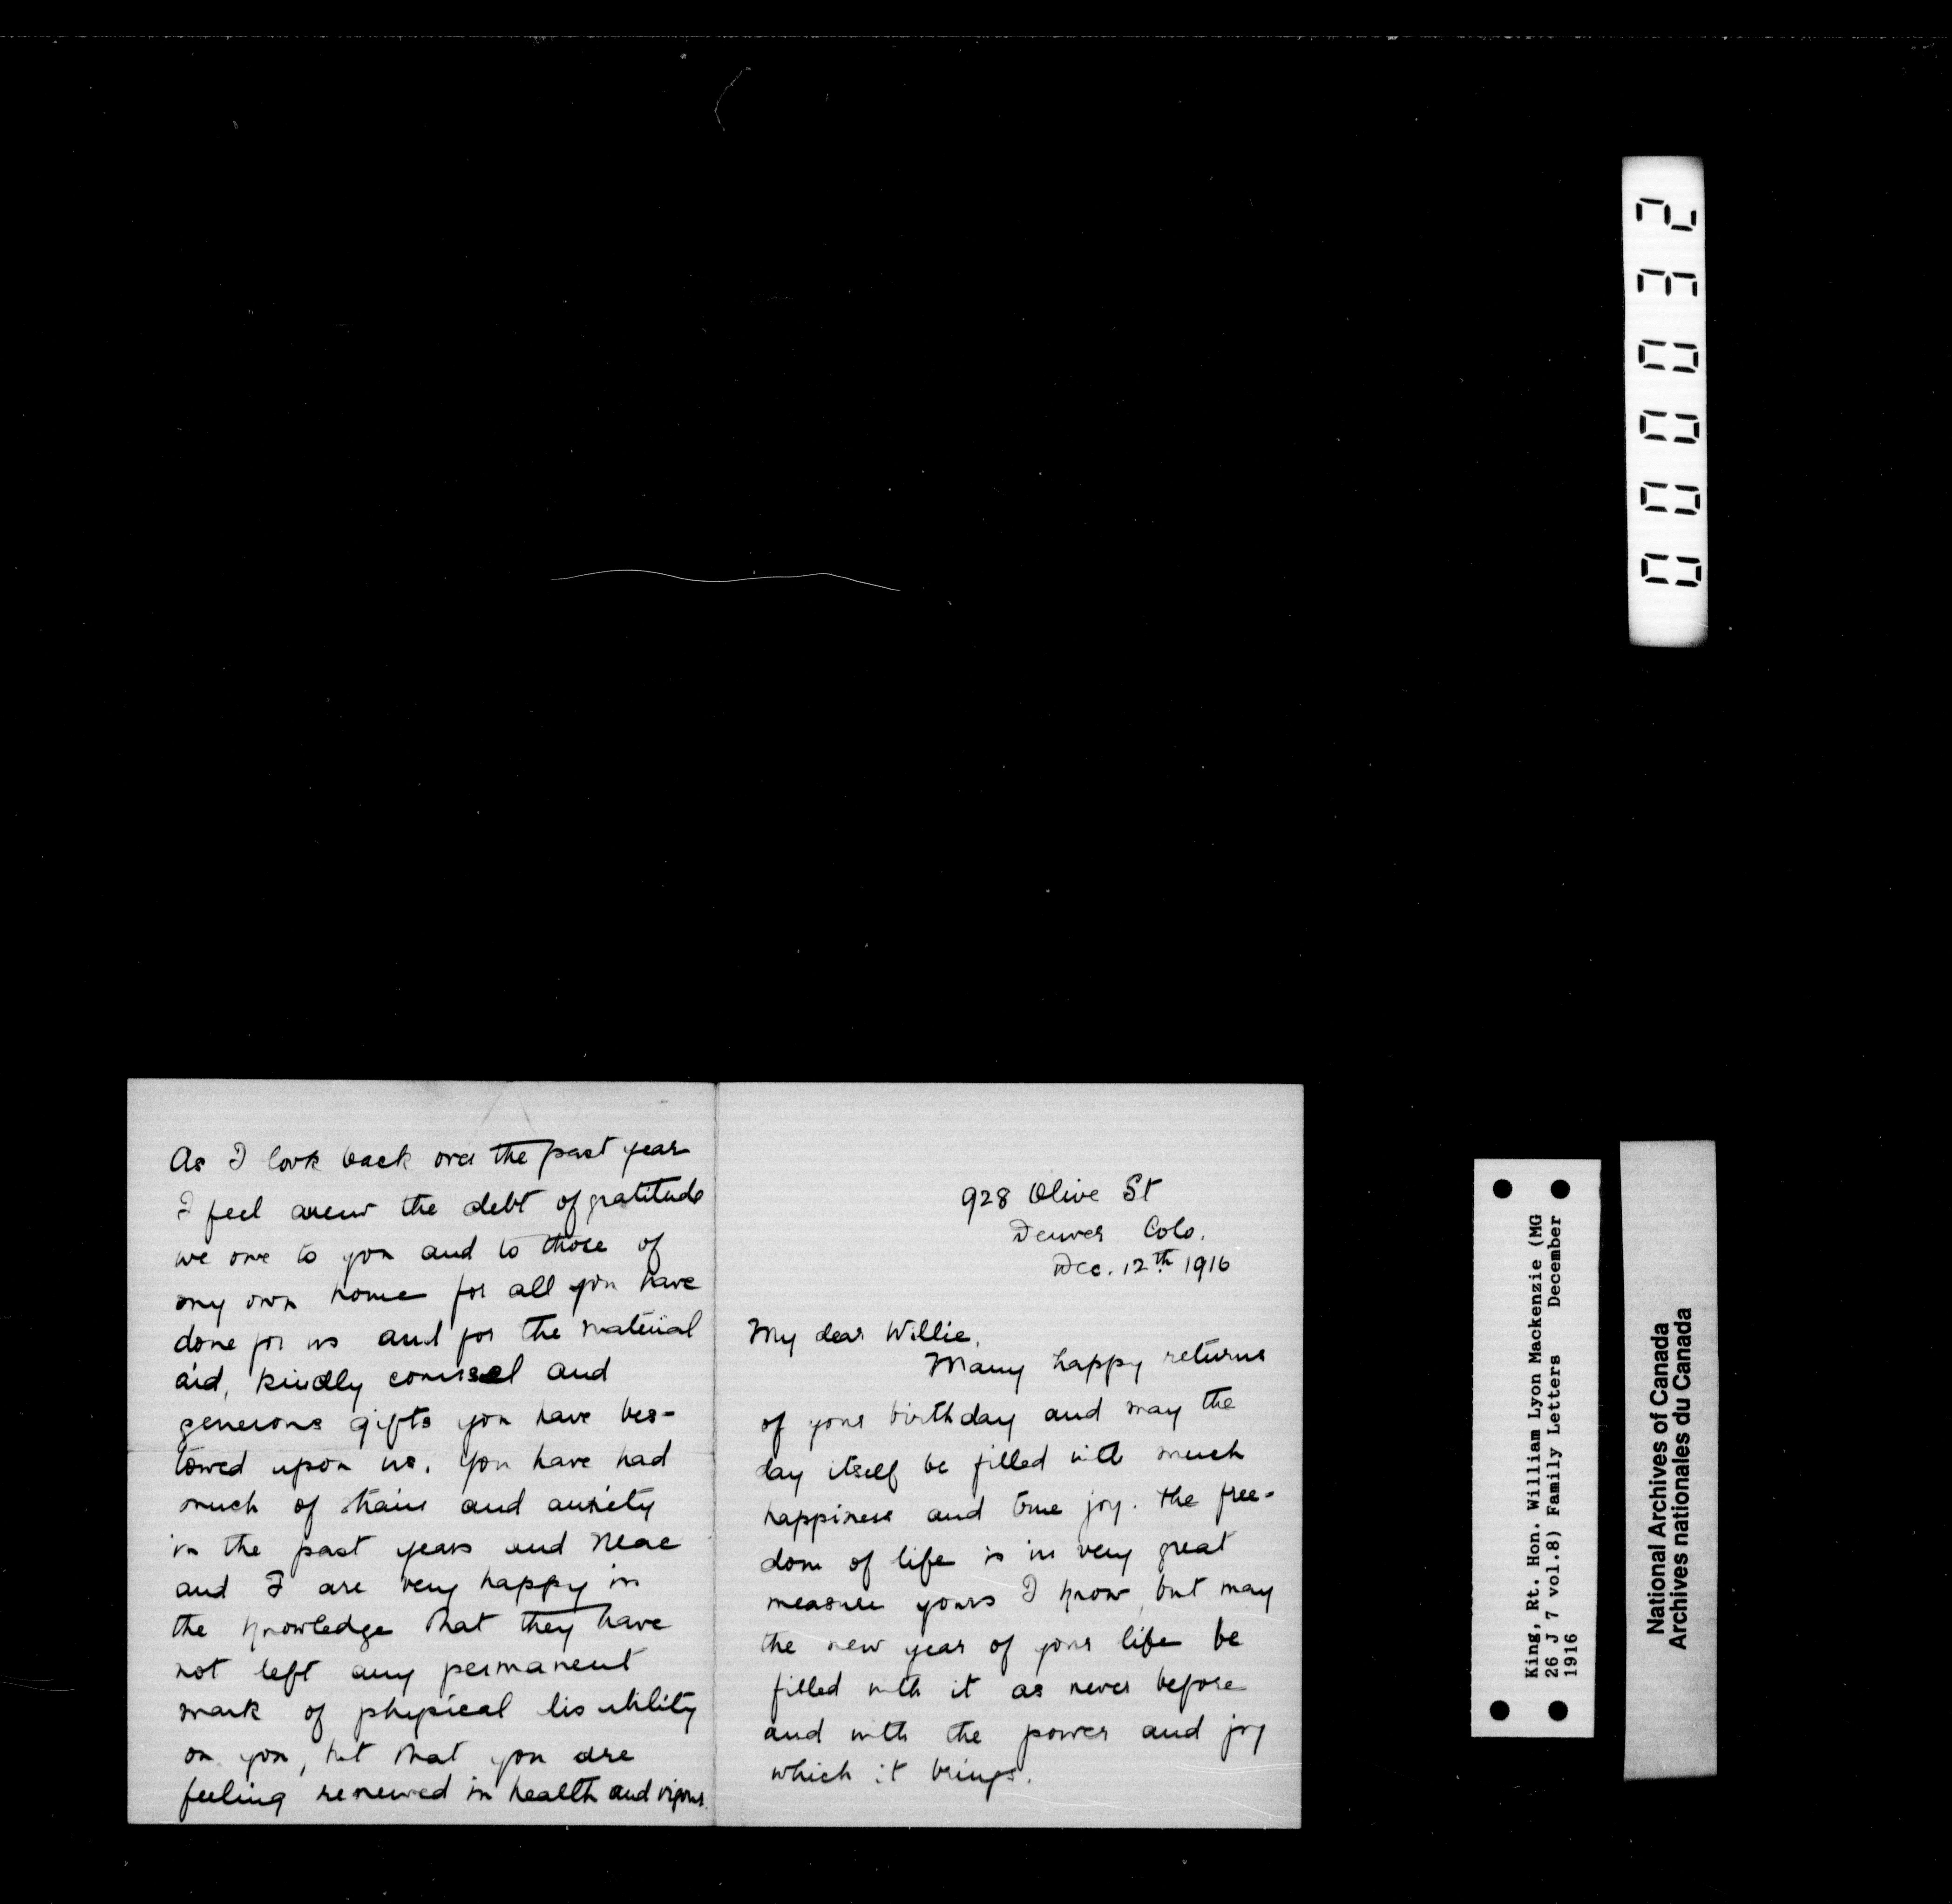 928 Olive St
Denver Colo.
Dec. 12th 1916
My dear Willie,
Many happy returns
of your birthday and may the
day itself be filled with much
happiness and true joy. The free-
dom of life is in very great
measure yours I know, but may
the new year of your life be
filled with it as never before
and with the power and joy
which it brings.
As I look back over the past year
I feel anew the debt of gratitude
we owe to you and to those of
my own home for all you have
done for us and for the material
aid, kindly counsel and
generous gifts you have bes-
towed upon us. You have had
much of strain and anxiety
in the past years and
and I are very happy in
the knowledge that they have
not left any permanent
mark of physical
on you, but that you are
feeling renewed in health and vigour.
000032
King, Rt. Hon. William Lyon Mackenzie (MG
26 J 7 vol.8) Family Letters December
1916
National Archives of Canada
Archives nationales du Canada